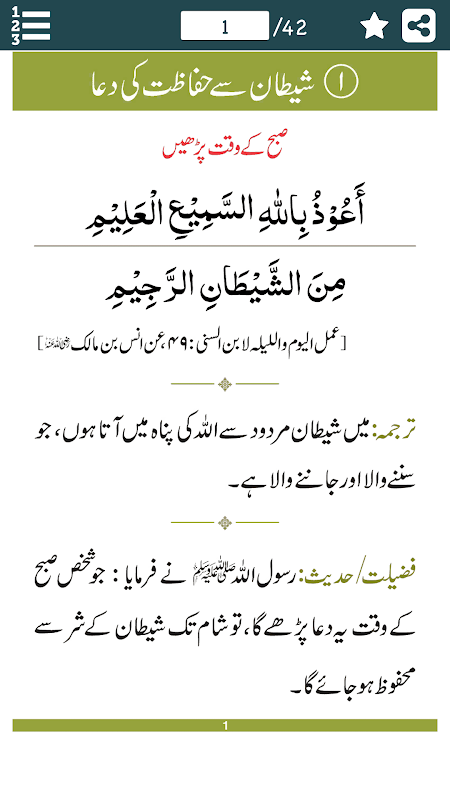 1
2
3
1 /42
۱ شیطان سے حفاظت کی دعا
صبح کے وقت پڑھیں
أَعُوْذُ بِاللّٰهِ السَّمِيْعِ الْعَلِيْمِ
مِنَ الشَّيْطَانِ الرَّجِيْمِ
[عمل اليوم والليله لابن السنی: ۴۹، عن انس بن مالک رضی اللہ عنہ]
ترجمہ: میں شیطان مردود سے اللہ کی پناہ میں آتا ہوں، جو
سننے والا اور جاننے والا ہے۔
فضیلت/حدیث: رسول اللہ ﷺ نے فرمایا: جو شخص صبح
کے وقت یہ دعا پڑھے گا، تو شام تک شیطان کے شر سے
محفوظ ہو جائے گا۔
1